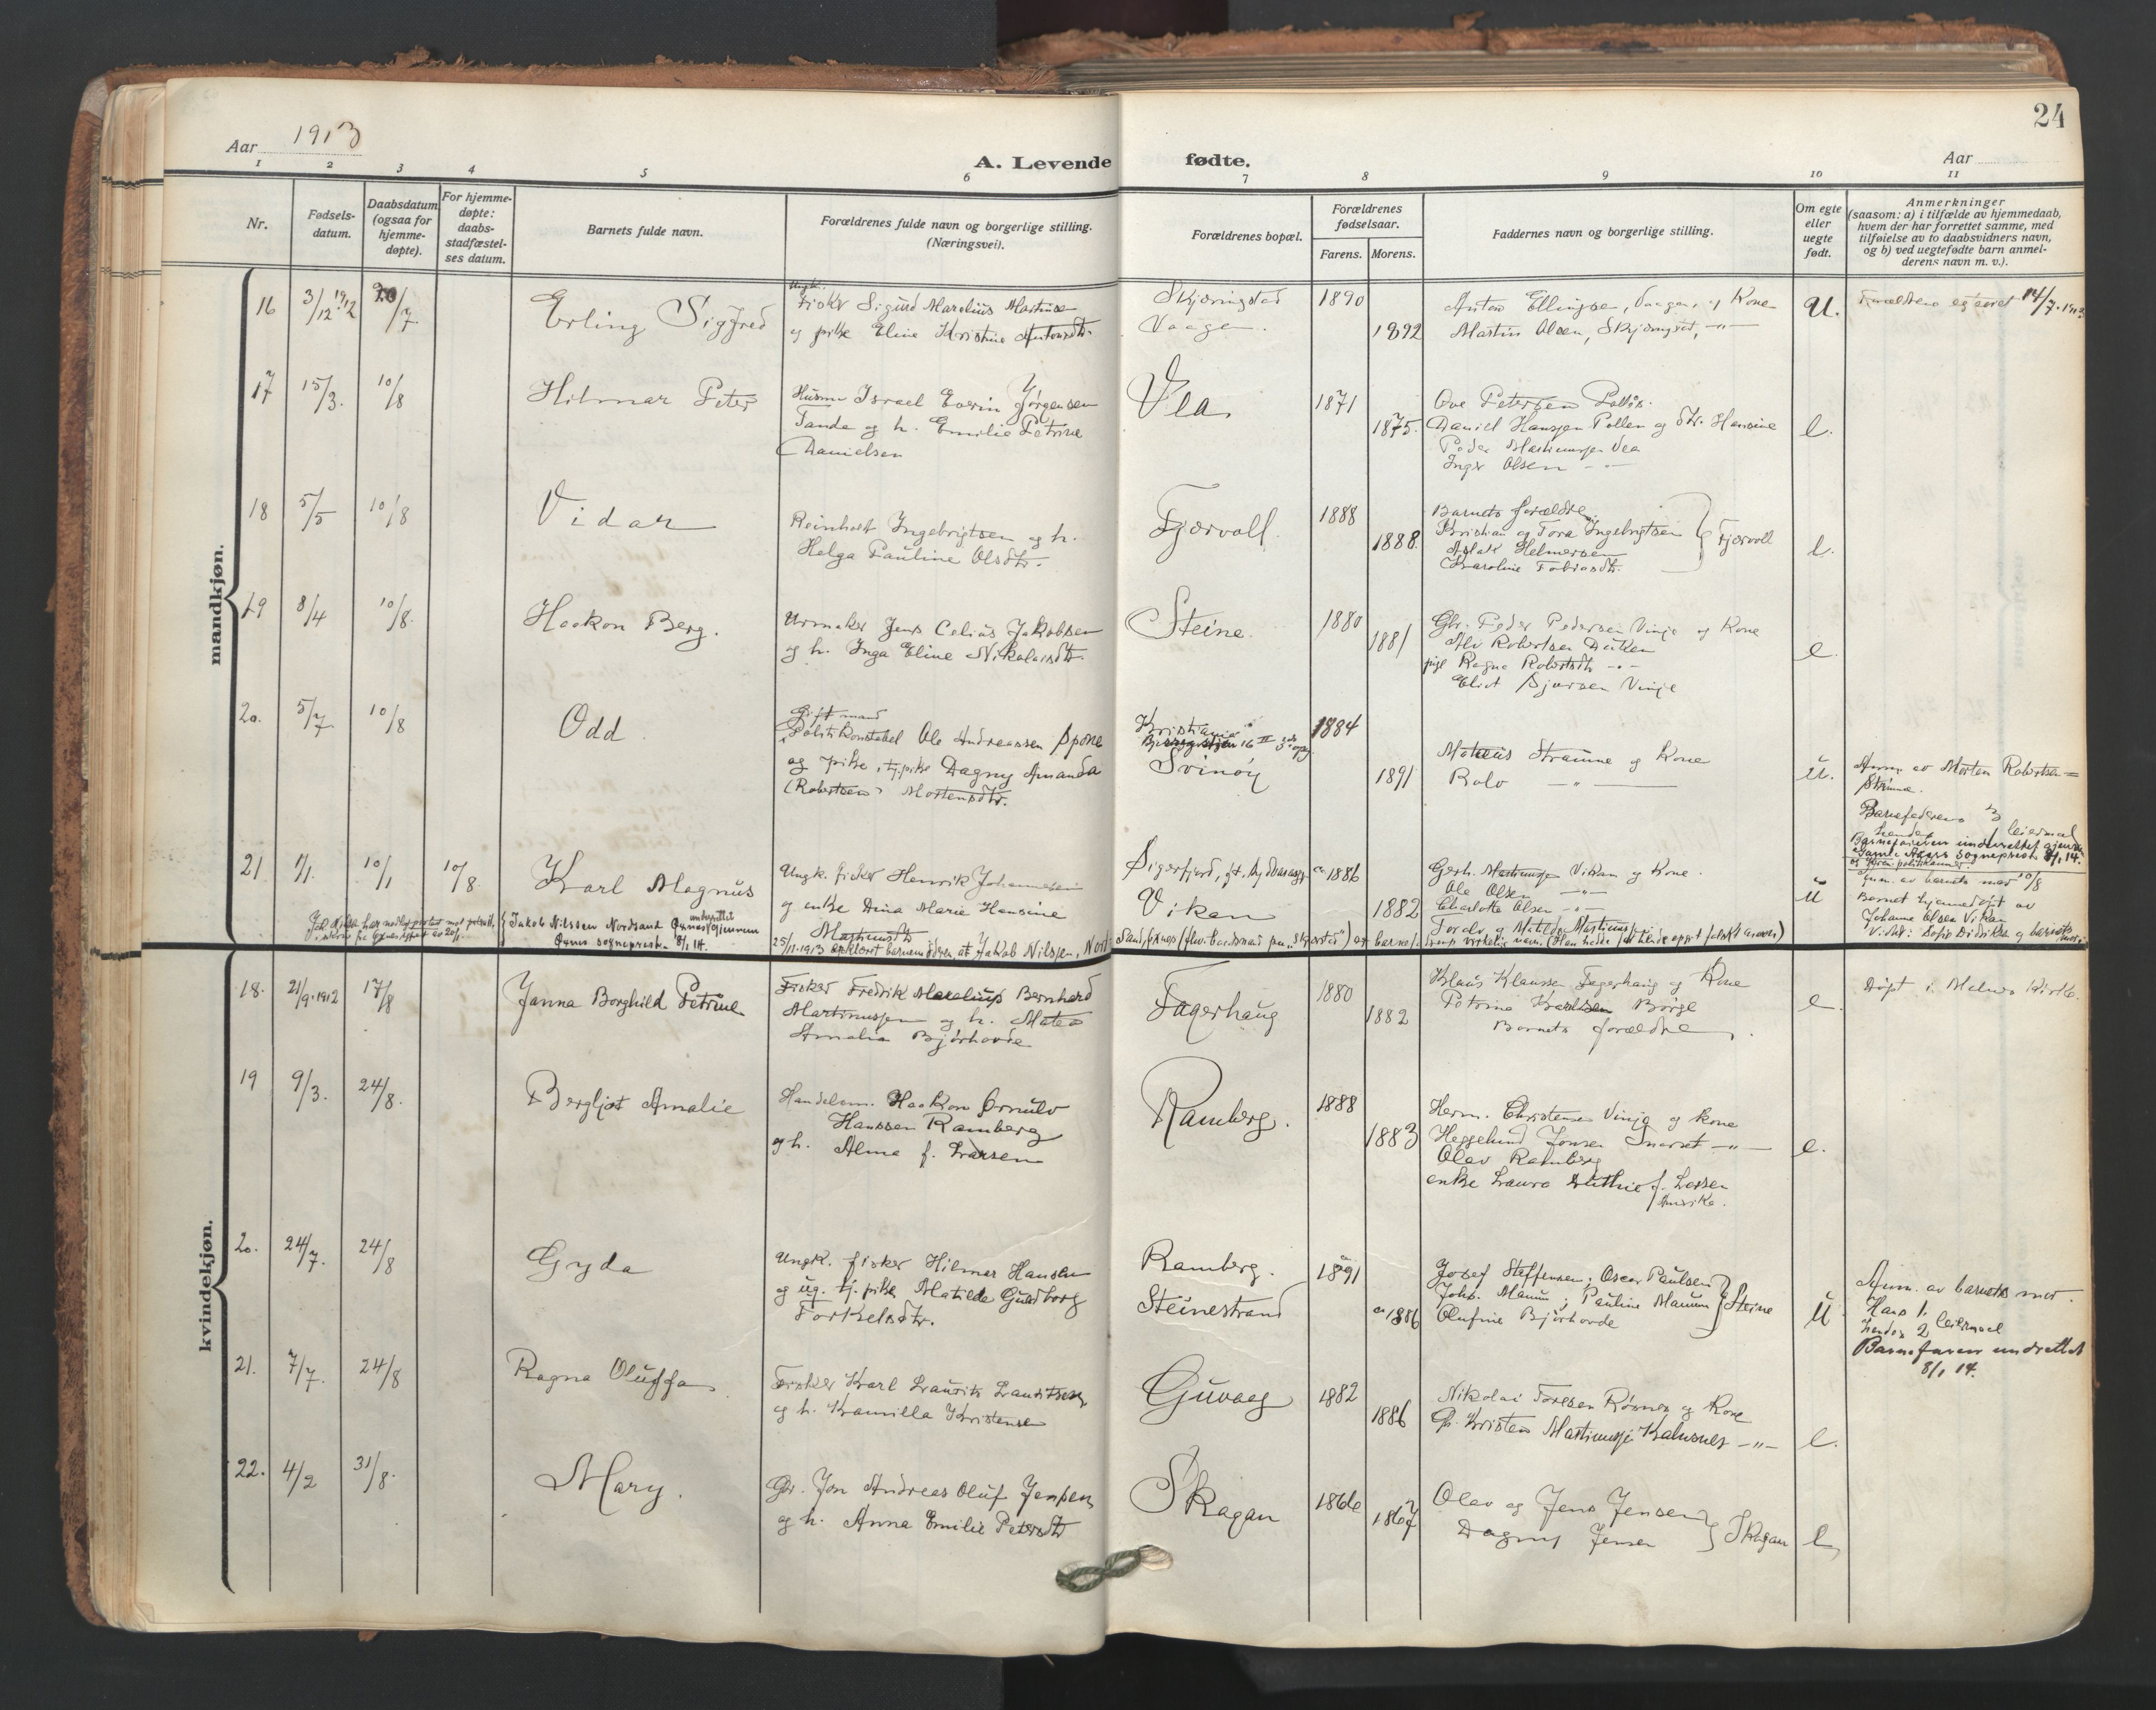 24
Aar 1913
A. Levende fødte.
Aar
1 2 3 4 5 6 7 8 9 10 11
Nr.
Fødsels-
datum.
Daabsdatum
(ogsaa for
hjemme-
døpte).
For hjemme-
døpte:
daabs-
stadfæstel-
ses datum.
Barnets fulde navn.
Forældrenes fulde navn og borgerlige stilling.
(Næringsvei).
Forældrenes bopæl.
Forældrenes
fødselsaar.
Farens. Morens.
Faddernes navn og borgerlige stilling.
Om egte
eller
uegte
født.
Anmerkninger
(saasom: a) i tilfælde av hjemmedaab,
hvem der har forrettet samme, med
tilføielse av to daabsvidners navn,
og b) ved uegtefødte barn anmel-
derens navn m. v.).
mandkjøn.
16 3/12 1912
Erling Sigfred
Ungk.
Fisker Sigurd Marelius Martinsen
og pike Eline Kristine Antonsdtr.
Skjæringstad
Vaagen.
1890
1892
Anton Ellingsen, Vaagen, og Kone
Martin Olsen, Skjæringstad, -"-
U.
Forældrene egteviet 14/7. 1913
17 15/3. 10/8
Hilmar Peter
Husm Israel Edvin Jørgensen
Tande og h. Emilie Petrine
Danielsen
Vea
1871
1875.
Ove Petersen
Daniel Hansen Pollen og dtr. Hansine
Peder Martinussen Vea
Inger Olsen -"-
e.
18 5/5 10/8
Vidar
Reinholt Ingebrigtsen og h.
Helga Pauline Olsdtr.
Fjærvoll.
1888
1888.
Barnets forældre,
Kristian og Tora Ingebrigtsen
Aslak Helmersen
Karoline Tobiasdtr.
Fjærvoll
e.
19 8/4 10/8.
Haakon Berg.
Urmaker Jens Celius Jakobsen
og h. Inga Eline Nikolaisdtr.
Steine.
1880
1881
Gbr. Peder Pedersen Vinje og Kone
Alv Robertsen
pige Ragna Robertsdtr -"-
Sjursen Vinje
e.
20. 5/7. 10/8
Odd
Gift mand
Politikonstabel Ole Andreassen Spone
og pike, tj.pike Dagny Amanda
(Robertsen) Mortensdtr.
Kristiania
Svinøy
1884
1891
Strømme og Kone
Rolv -"-
u.
Anm. av Morten Robertsen
Barnefaderens 3
hendes 1 leiermaal
21 1/1. 10/1 10/8
Karl Magnus
Ungk. fisker Henrik Johannesen
og enke Dina Marie Hansine
Martinusdtr
Sigerfjord,
Vikan
ca 1886
1882
Gerh. Martinussen Vikan og Kone.
Ole Olsen -"-
Charlotte Olsen -"-
Tordis og Matilde Martinus
u
Anm. av barnets mor 10/8
Barnet hjemmedøpt av
Johanne Olsen Vikan
Vidner: Sofie Didriksen og barnets mor
Jakob Nilssen Nordsand Øxnes underrettet gjennem
Øxnes sogneprest 8/1 14.
25/11-1913 erklæret barnemoderen, at Jakob Nilssen, Nord-
Sand, Øxnes er barnefarens virkelige navn.
kvindekjøn.
18. 21/9. 1912 17/8
Janna Borghild Petrine
Fisker Fredrik Marelius Bernhard
Martinussen og h. Matea
Amalia Bjørhovde
Fagerhaug
1880
1882
Klaus Klaussen Fagerhaug og Kone
Petrina Karlsen Børge
Barnets forældre.
e.
Døpt i Melnes Kirke.
19 9/3. 24/8.
Bergljot Amalie
Handelsm. Haakon Ørnulv
Hanssen Ramberg
og h. Alma f. Larsen
Ramberg.
1888
1883
Herm. Christensen Vinje og kone
Heggelund Jonsen -"-
Olav Ramberg
enke Laura f. Larsen
Amerika.
e.
20. 24/7. 24/8
Gyda
Ungk. fisker Hilmar Hansen
og ug. tj. pike Matilde Guldborg
Torkelsdtr.
Ramberg.
Steinestrand
1891
ca 1886
Josef Steffensen; Oscar Paulsen
Johs. Manum; Pauline Manum
Olufine Bjørhovde
Steine
U
Anm. av barnets mor.
Hans 1.
hendes 2 leiermaal
Barnefaren underrettet
8/1 14.
21. 7/7. 24/8
Ragna Oluffa
Fisker Karl Laurits Lauritsen
og h. Kamilla Kristensen
Guvaag
1882
1886
Nikolai Toresen Røsnes og Kone
Gb. Kristen Martinussen Kalnsnes -"-
e.
22. 4/2 31/8.
Mary.
Gbr. Jon Andreas Oluf Jensen
og h. Anna Emilie Petersdtr
Skagan
1866
1867
Olav og Jens Jensen
Dagny Jensen
Skagan
e